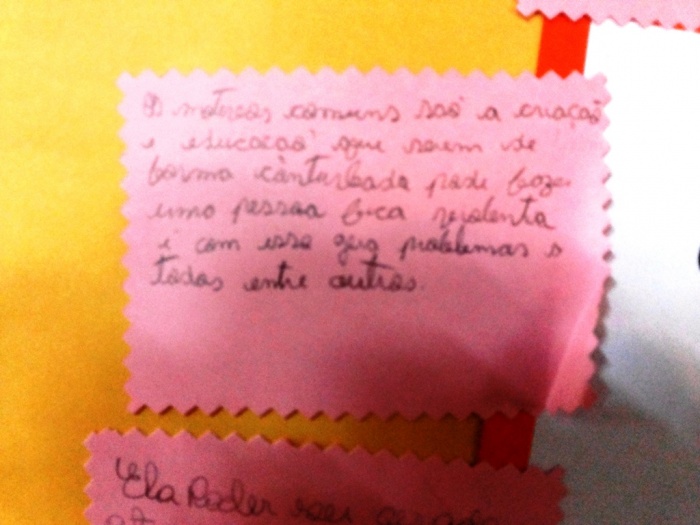 O motivos comuns são a criação
e educação que saem de
forma conturbada pode fazer
uma pessoa fica violenta
e com isso gera problemas a
todos entre outros.
Ela Poder ser gerada